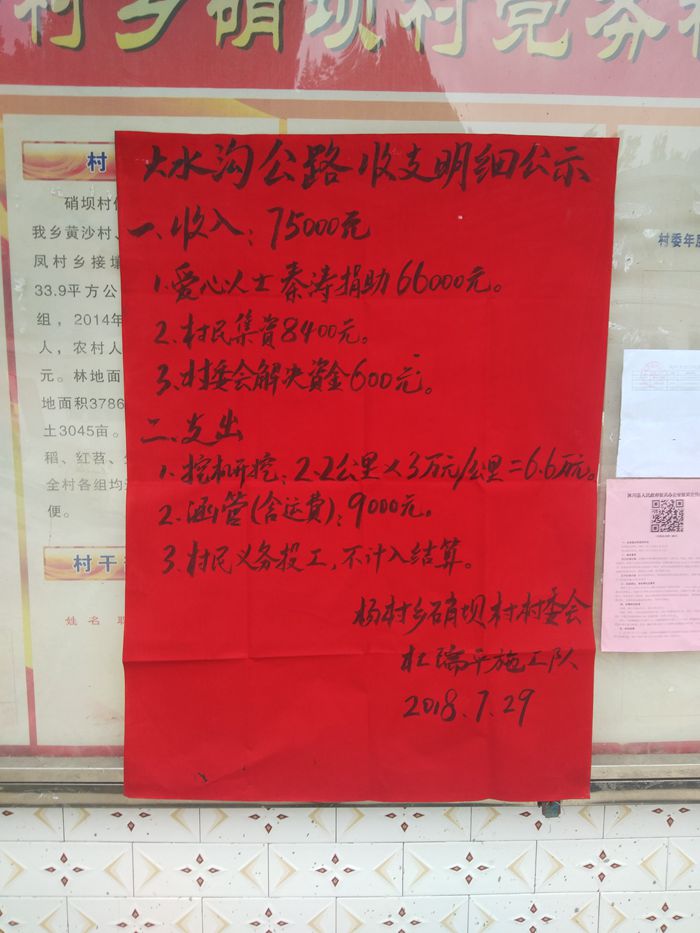 村乡硝坝村党务村
大水沟公路收支明细公示
一、收入：75000元
1.爱心人士秦涛捐助66000元。
2.村民集资8400元。
3.村委会解决资金600元。
二、支出
1.挖机开挖：2.2公里×3万元/公里=6.6万元。
2.涵管(含运费)：9000元。
3.村民义务投工，不计入结算。
杨村乡硝坝村村委会
杜瑞平施工队
2018.7.29
村
硝坝村
我乡黄沙村、
凤村乡接
33.9平方公
组，2014年
人，农村人
元。林地面
地面积3786
土3045亩。
稻、红苕、
全村各组均
便。
村干
姓 名
村委年度